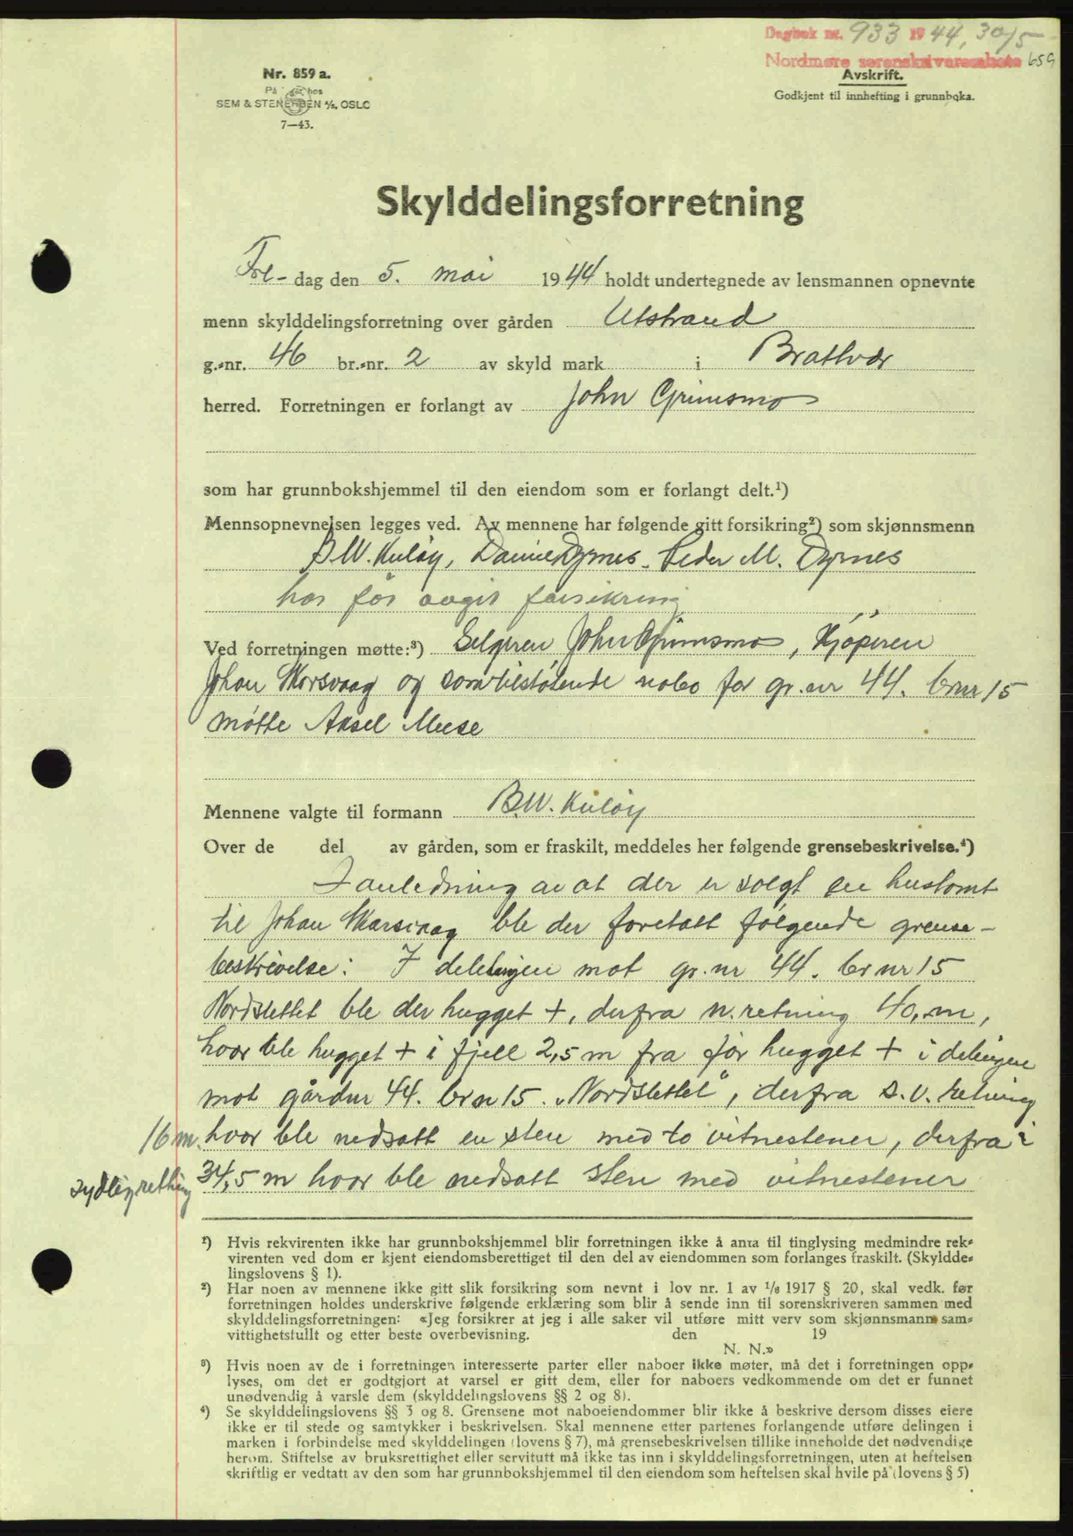 Dagbok nr. 933 1944, 30/5
Nordmøre sorenskriverembete 659
Nr. 859 a.
SEM & STENERSEN A/S, OSLO
7—43.
Avskrift.
Godkjent til innhefting i grunnboka.
Skylddelingsforretning
Fre- dag den 5. mai 1944 holdt undertegnede av lensmannen opnevnte
menn skylddelingsforretning over gården Utstrand
g.-nr. 46 br.-nr. 2 av skyld mark i Brattvær
herred. Forretningen er forlangt av John Grimsmo
som har grunnbokshjemmel til den eiendom som er forlangt delt.¹)
Mennsopnevnelsen legges ved. Av mennene har følgende gitt forsikring²) som skjønnsmenn
B.W. Kuløy, Daniel Dyrnes. Peder M. Dyrnes
har før avgit forsikring
Ved forretningen møtte:³) Selgeren John Grimsmo, Kjøperen
Johan Skorsvaag og som tilstøtende nabo for gr. nr 44. br nr 15
møtte Aksel Meese
Mennene valgte til formann B.W. Kuløy
Over de del av gården, som er fraskilt, meddeles her følgende grensebeskrivelse.⁴)
I anledning av at der er solgt en hustomt
til Johan Skarsvaag ble der foretatt følgende grense-
beskrivelse: I delelingen mot gr. nr 44. br nr 15
Nordslettet ble der hugget +, derfra n. retning 40, m,
hvor ble hugget + i fjell 2,5 m fra før hugget + i delingen
mot gårdnr 44. br n 15. "Nordslettet", derfra s.v. retning
16 m. hvor ble nedsatt en sten med to vitnestener, derfra i
sydlig retning 34,5 m hvor ble nedsatt sten med vitnestener
¹) Hvis rekvirenten ikke har grunnbokshjemmel blir forretningen ikke å anta til tinglysing medmindre rek-
virenten ved dom er kjent eiendomsberettiget til den del av eiendommen som forlanges fraskilt. (Skyldde-
lingslovens § 1).
²) Har noen av mennene ikke gitt slik forsikring som nevnt i lov nr. 1 av ¹/₆ 1917 § 20, skal vedk. før
forretningen holdes underskrive følgende erklæring som blir å sende inn til sorenskriveren sammen med
skylddelingsforretningen: «Jeg forsikrer at jeg i alle saker vil utføre mitt verv som skjønnsmann sam-
vittighetsfullt og etter beste overbevisning. den 19
N. N.»
³) Hvis noen av de i forretningen interesserte parter eller naboer ikke møter, må det i forretningen opp-
lyses, om det er godtgjort at varsel er gitt dem, eller for naboers vedkommende om det er funnet
unødvendig å varsle dem (skylddelingslovens §§ 2 og 8).
⁴) Se skylddelingslovens §§ 3 og 8. Grensene mot naboeiendommer blir ikke å beskrive dersom disses eiere
ikke er til stede og samtykker i beskrivelsen. Skal mennene etter partenes forlangende utføre delingen i
marken i forbindelse med skylddelingen (lovens § 7), må grensebeskrivelsen tillike inneholde det nødvendige
herom. Stiftelse av bruksrettighet eller servitutt må ikke tas inn i skylddelingsforretningen, uten at heftelsen
skriftlig er vedtatt av den som har grunnbokshjemmel til den eiendom som heftelsen skal hvile på (lovens § 5)